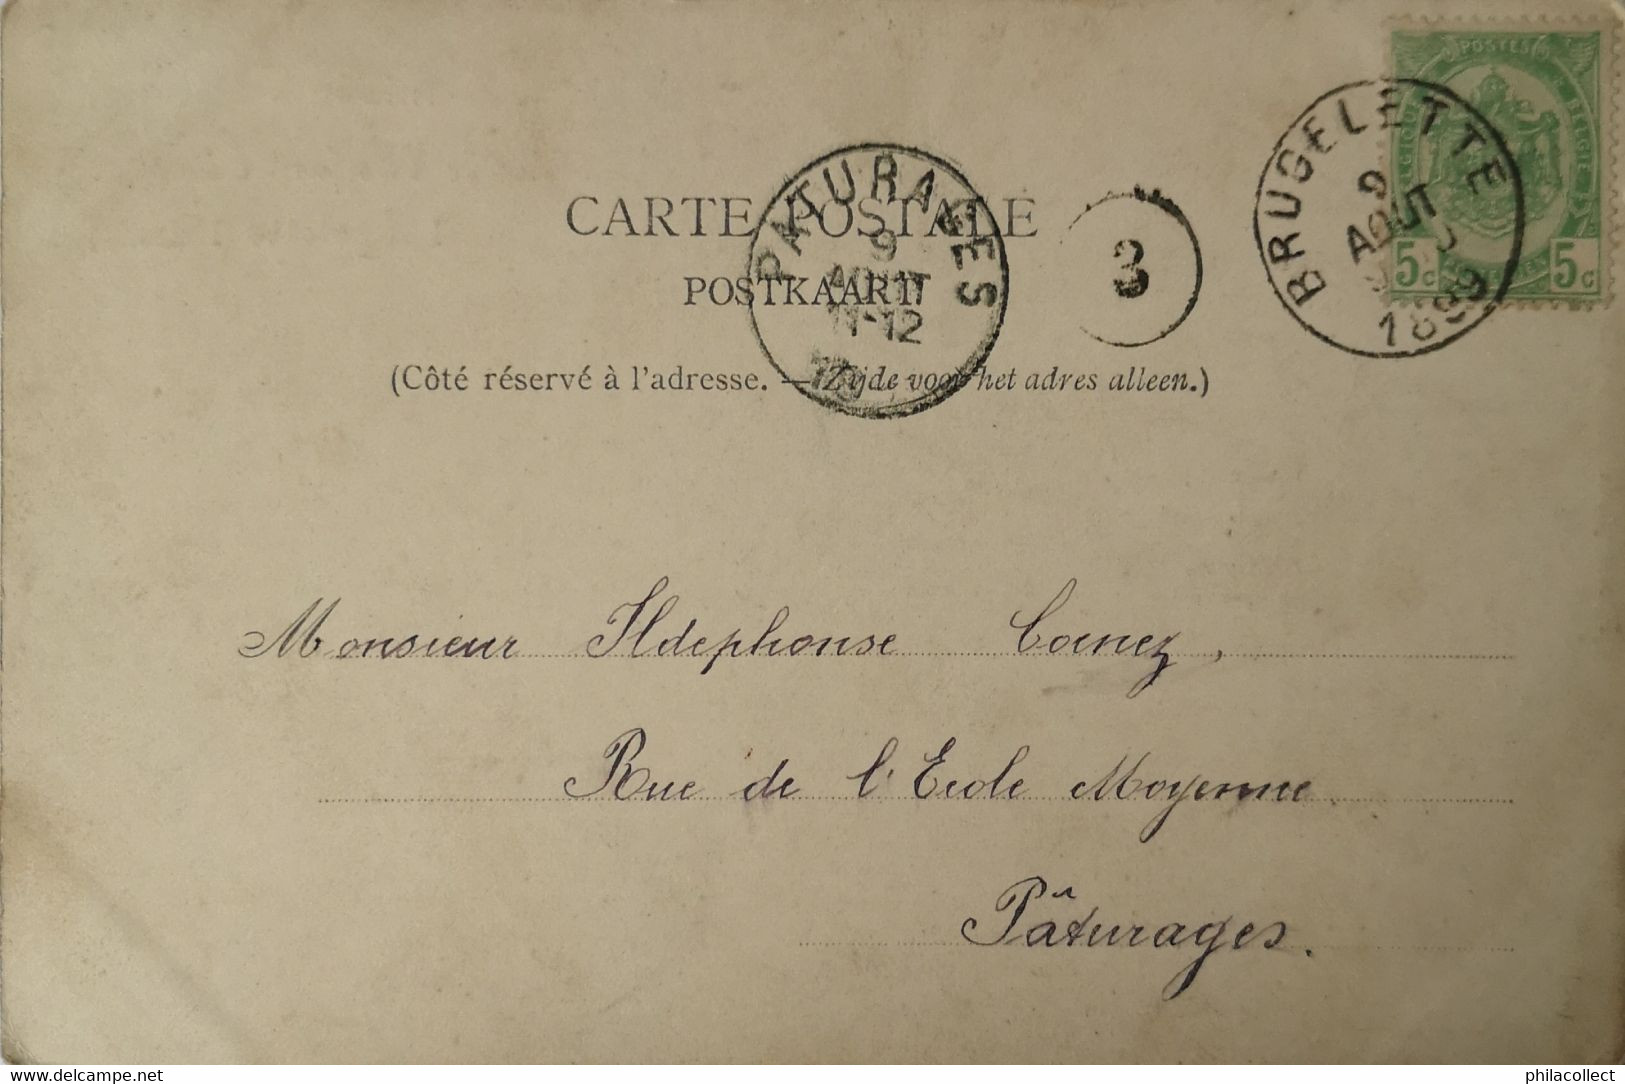 POSTES
BELGIQUE BELGIE
5c 5c
BRUGELETTE
9
AOUT
1899
PATURAGES
9
AOUT
11-12
3
CARTE POSTALE
POSTKAART
(Côté réservé à l'adresse. — Zijde voor het adres alleen.)
Monsieur Ildephonse Cornez,
Rue de l'Ecole Moyenne
Pâturages.
www.delcampe.net
philacollect